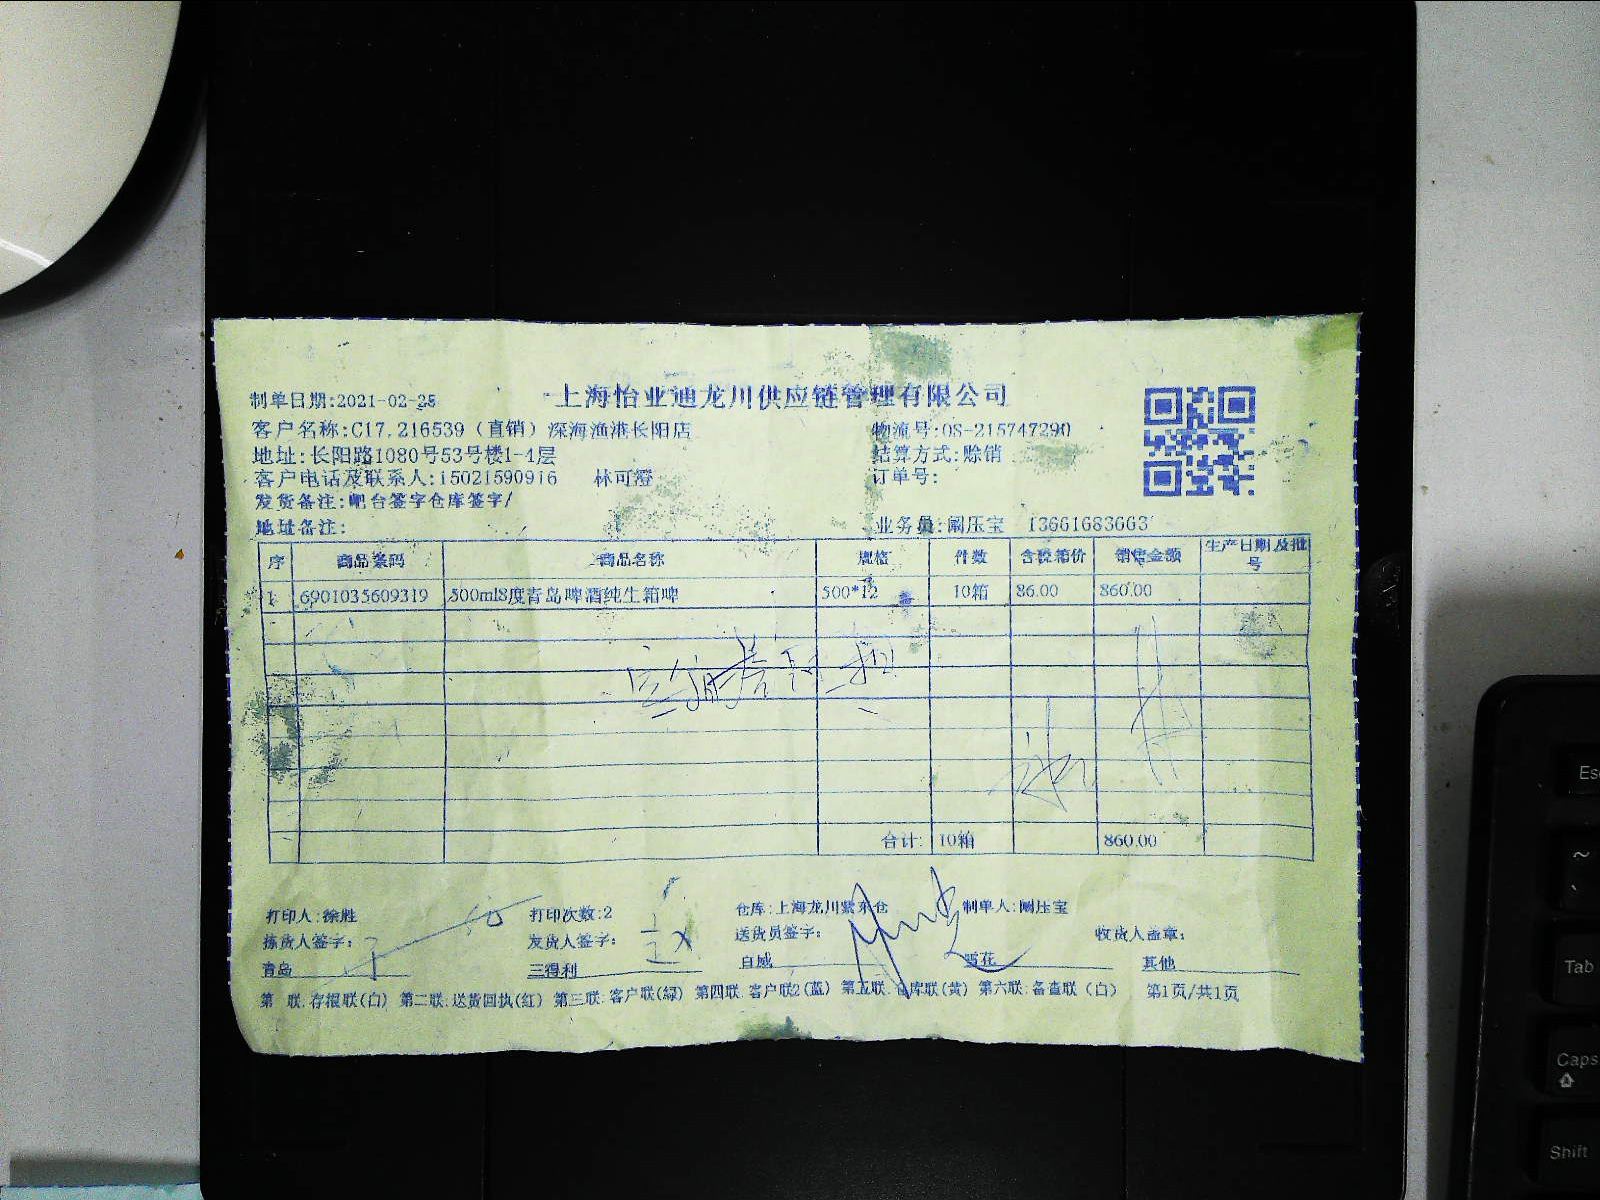 上海怡亚通龙川供应链管理有限公司
制单日期:2021-02-25
客户名称:C17.216539（直销）深海渔港长阳店
物流号:OS-215747290
地址:长阳路1080号53号楼1-4层
结算方式:赊销
客户电话及联系人:15021590916 林可澄
订单号:
发货备注:吧台签字仓库签字/
地址备注:
业务员:阚压宝 13661683663
序 商品条码 商品名称 规格 件数 含税箱价 销售金额 生产日期及批号
1 6901035609319 500ml8度青岛啤酒纯生箱啤 500*12 10箱 86.00 860.00
合计: 10箱 860.00
打印人:徐胜 打印次数:2 仓库:上海龙川紫东仓 制单人:阚压宝
拣货人签字: 发货人签字: 送货员签字: 收货人盖章:
青岛 三得利 百威 雪花 其他
第 联:存根联(白) 第二联:送货回执(红) 第三联:客户联(绿) 第四联:客户联2(蓝) 第五联:仓库联(黄) 第六联:备查联（白） 第1页/共1页
Esc
~
Tab
Caps
Shift